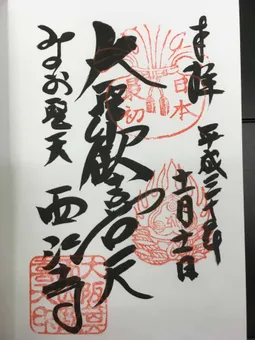 奉拝 平成三十年
十一月十一日
日本
最初
大聖歓喜天
みのお聖天 西江寺